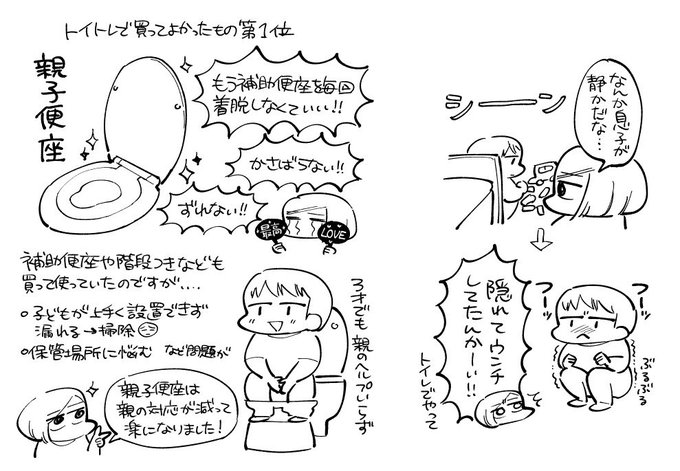 トイトレで買ってよかったもの第1位
親子便座
もう補助便座を毎回
着脱しなくていい!!
かさばらない!!
ずれない!!
最高
LOVE
補助便座や階段つきなども
買って使っていたのですが....
・子どもが上手く設置できず
漏れる→掃除
・保管場所に悩む など問題が
親子便座は
親の対応が減って
楽になりました!
3才でも 親のヘルプいらず
なんか息子が
静かだな…
シーーン
隠れてウンチ
してたんかーい!!
トイレでやって
フーッ
フーッ
ぶるぶる